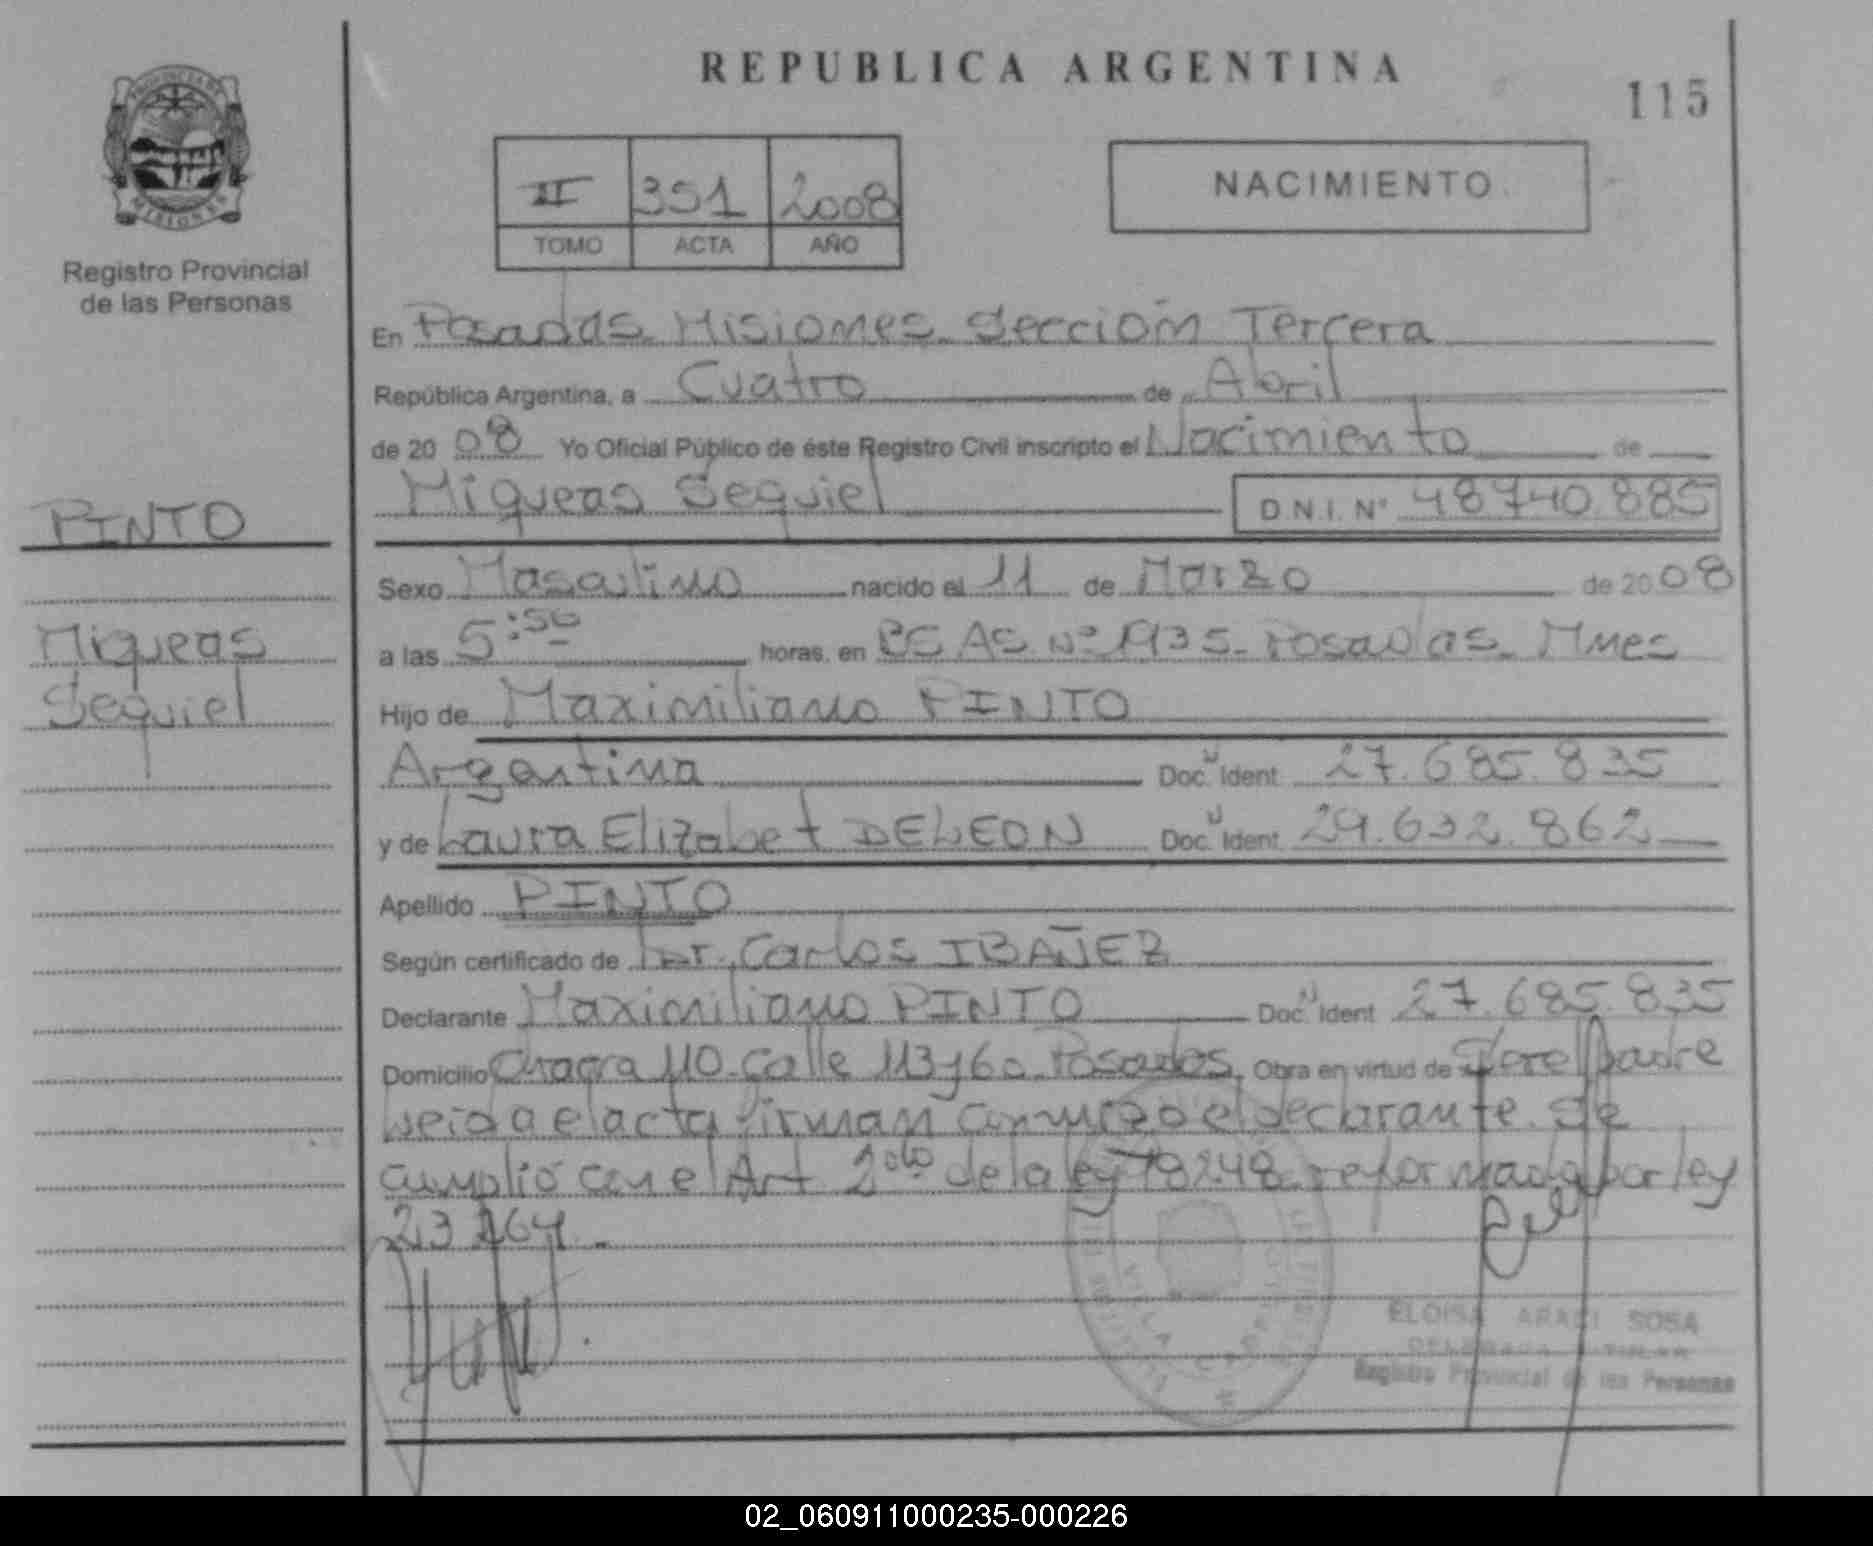 REPUBLICA ARGENTINA
115
PROVINCIA DE
MISIONES
Registro Provincial
de las Personas
II 351 2008
TOMO ACTA AÑO
NACIMIENTO
En Posadas Misiones Sección Tercera
República Argentina, a Cuatro de Abril
de 2008 Yo Oficial Público de éste Registro Civil inscripto el Nacimiento de
Miqueas Sequiel D.N.I. N° 48740.885
PINTO
Miqueas
Sequiel
Sexo Masculino nacido el 11 de Marzo de 2008
a las 5:50 horas, en BS AS Nº 1935- Posadas- Mnes
Hijo de Maximiliano PINTO
Argentina Doc. Ident 27.685.835
y de Laura Elizabet DELEON Doc. Ident 29.632.862
Apellido PINTO
Según certificado de Dr. Carlos IBAÑEZ
Declarante Maximiliano PINTO Doc. Ident 27.685.835
Domicilio Chacra 110-Calle 113 y 60 Posadas Obra en virtud de Ser el padre
Leida el acta firman conmigo el declarante. Se
cumplió con el Art 2do de la ley 18248 reformada por ley
23264.-
ELOISA ARACI SOSA
DELEGADA TITULAR
Registro Provincial de las Personas
02_060911000235-000226